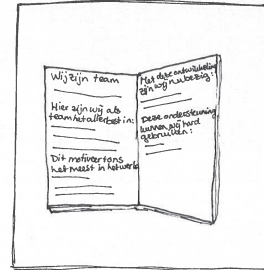 Wij zijn team
Hier zijn wij als
team het allerbest in:
Dit motiveert ons
het meest in het werk
Met deze ontwikkeling
zijn wij nu bezig:
Deze ondersteuning
kunnen wij hard
gebruiken: